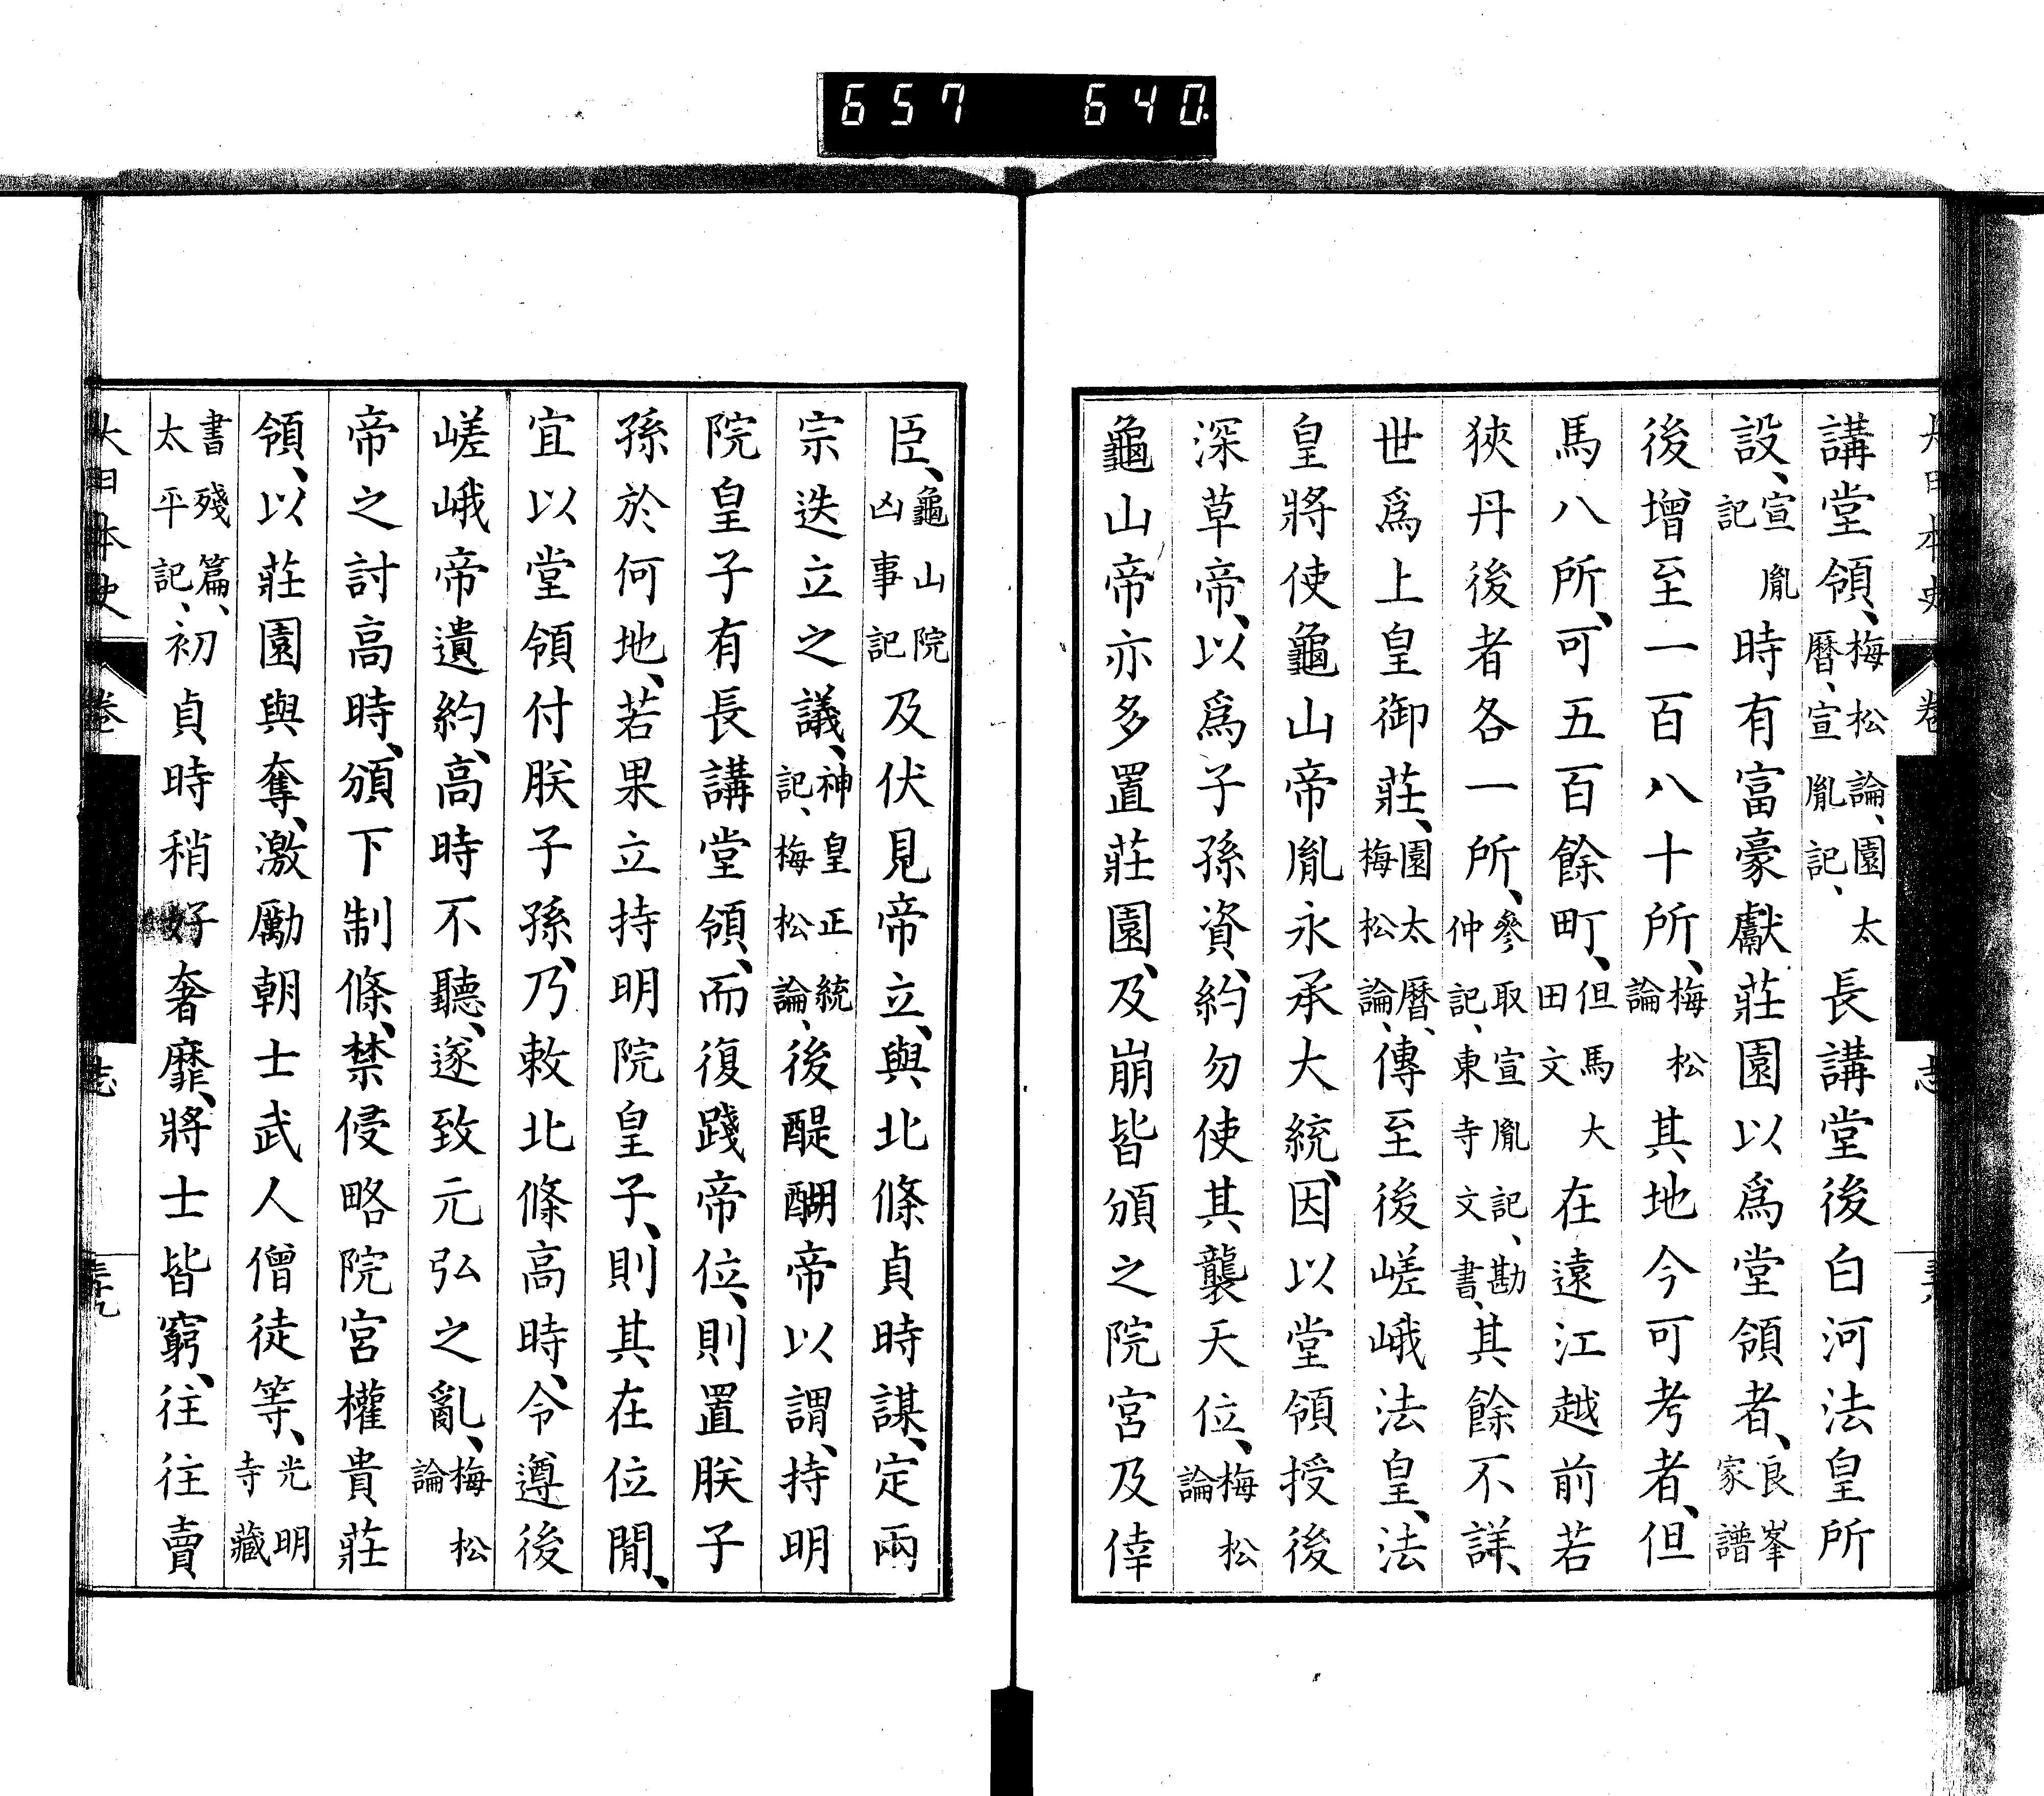 657 640
大日本史 卷 志
講堂領、梅松論、園太曆、宣胤記、長講堂後白河法皇所
設、宣胤記時有富豪獻莊園以爲堂領者、良峯家譜
後增至一百八十所、梅松論其地今可考者、但
馬八所、可五百餘町、但馬大田文在遠江越前若
狹丹後者各一所、參取宣胤記、勘仲記、東寺文書、其餘不詳、
世爲上皇御莊、園太曆、梅松論、傳至後嵯峨法皇、法
皇將使龜山帝胤永承大統、因以堂領授後
深草帝、以爲子孫資、約勿使其襲天位、梅松論
龜山帝亦多置莊園、及崩皆頒之院宮及倖
臣、龜山院凶事記及伏見帝立、與北條貞時謀、定兩
宗迭立之議、神皇正統記、梅松論、後醍醐帝以謂、持明
院皇子有長講堂領、而復踐帝位、則置朕子
孫於何地、若果立持明院皇子、則其在位閒、
宜以堂領付朕子孫、乃敕北條高時、令遵後
嵯峨帝遺約、高時不聽、遂致元弘之亂、梅松論
帝之討高時、頒下制條、禁侵略院宮權貴莊
領、以莊園與奪、激勵朝士武人僧徒等、光明寺藏
書殘篇、太平記、初貞時稍好奢靡、將士皆窮、往往賣
大日本史 卷 志